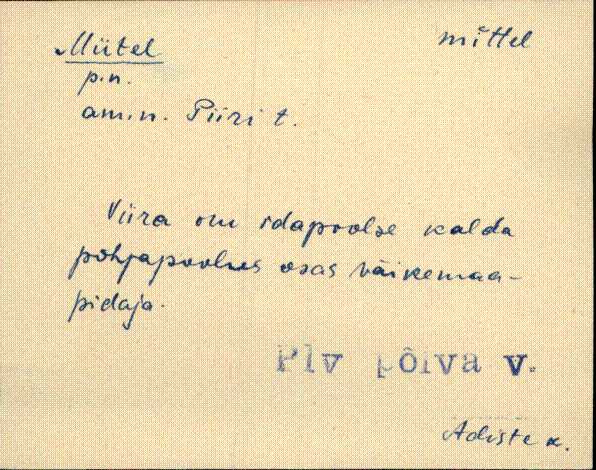 Mütel mĭttel
p.n.
am.n. Piiri t.
Viira om idapoolse kalda
põhjapoolses osas väikemaa-
pidaja.
Plv põlva v.
Adiste k.